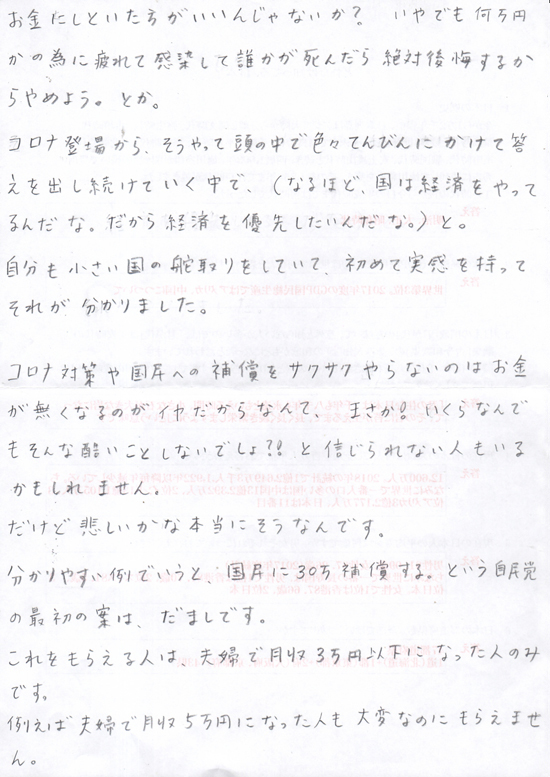 お金にしといた方がいいんじゃないか？　いやでも何万円
かの為に疲れて感染して誰かが死んだら絶対後悔するか
らやめよう。とか。
コロナ登場から、そうやって頭の中で色々てんびんにかけて答
えを出し続けていく中で、（なるほど、国は経済をやって
るんだな。だから経済を優先したいんだな。）と。
自分も小さい国の舵取りをしていて、初めて実感を持って
それが分かりました。
コロナ対策や国民への補償をサクサクやらないのはお金
が無くなるのがイヤだからなんて、まさか！いくらなんで
もそんな酷いことしないでしょ？！と信じられない人もいる
かもしれません。
だけど悲しいかな本当にそうなんです。
分かりやすい例でいうと国民に30万補償する。という自民党
の最初の案は、だましです。
これをもらえる人は、夫婦で月収3万円以下になった人のみ
です。
例えば夫婦で月収5万円になった人も大変なのにもらえませ
ん。